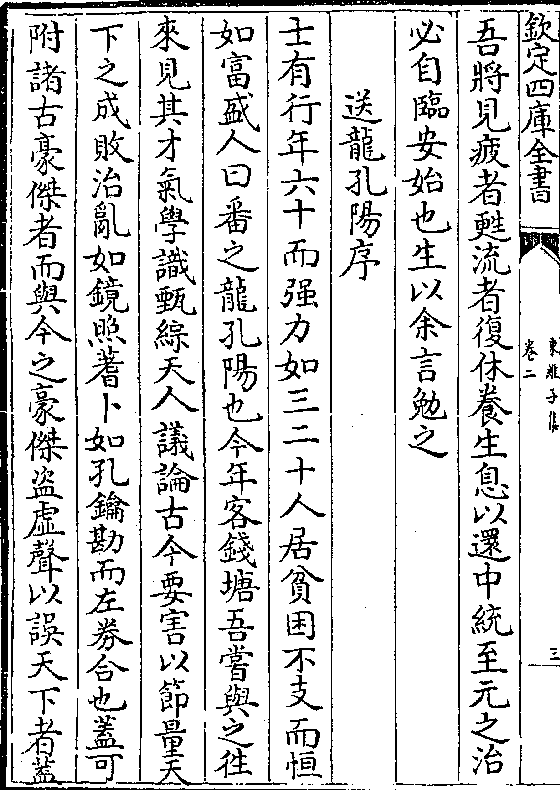 欽定四庫全書
東維子集
卷二
三
吾將見疲者甦流者復休養生息以還中統至元之治
必自臨安始也生以余言勉之
送龍孔陽序
士有行年六十而强力如三二十人居貧困不支而恒
如富盛人曰番之龍孔陽也今年客錢塘吾嘗與之徃
來見其才氣學識甄綜天人議論古今要害以節量天
下之成敗治亂如鏡照蓍卜如孔鑰勘而左券合也蓋可
附諸古豪傑者而與今之豪傑盜虛聲以誤天下者蓋